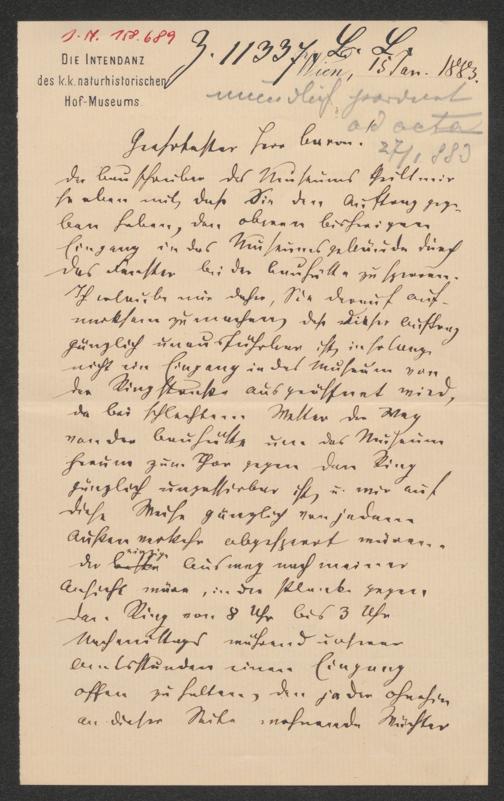 J. N. 158.689
Z. 11337
DIE INTENDANZ
des k.k. naturhistorischen
Hof-Museums.
Wien, 15 Jan. 1883.
mündlich geordnet
ad acta
27/1 883
Geehrtester Herr Baron!
Der Bauschreiber des Museums theilt mir
so eben mit, daß Sie den Auftrag gege-
ben haben, den oberen bisherigen
Eingang in das Museumsgebäude durch
das Fenster bei der Bauhütte zu sperren.
Ich erlaube mir daher, Sie darauf auf-
merksam zu machen, daß dieser Auftrag
gänzlich unausführbar ist, in solange
nicht ein Eingang in das Museum von
der Ringstraße aus geöffnet wird,
da bei schlechtem Wetter der Weg
von der Bauhütte um das Museum
herum zum Thor gegen den Ring
gänzlich unpassierbar ist, u. wir auf
diese Weise gänzlich von jedem
Außenverkehr abgesperrt wären.
Der einzige Ausweg nach meiner
Ansicht wäre, in der Planke gegen
den Ring von 8 Uhr bis 3 Uhr
Nachmittags während unserer
Amtsstunden einen Eingang
offen zu halten, den ja der ohnehin
an dieser Seite wohnende Wächter